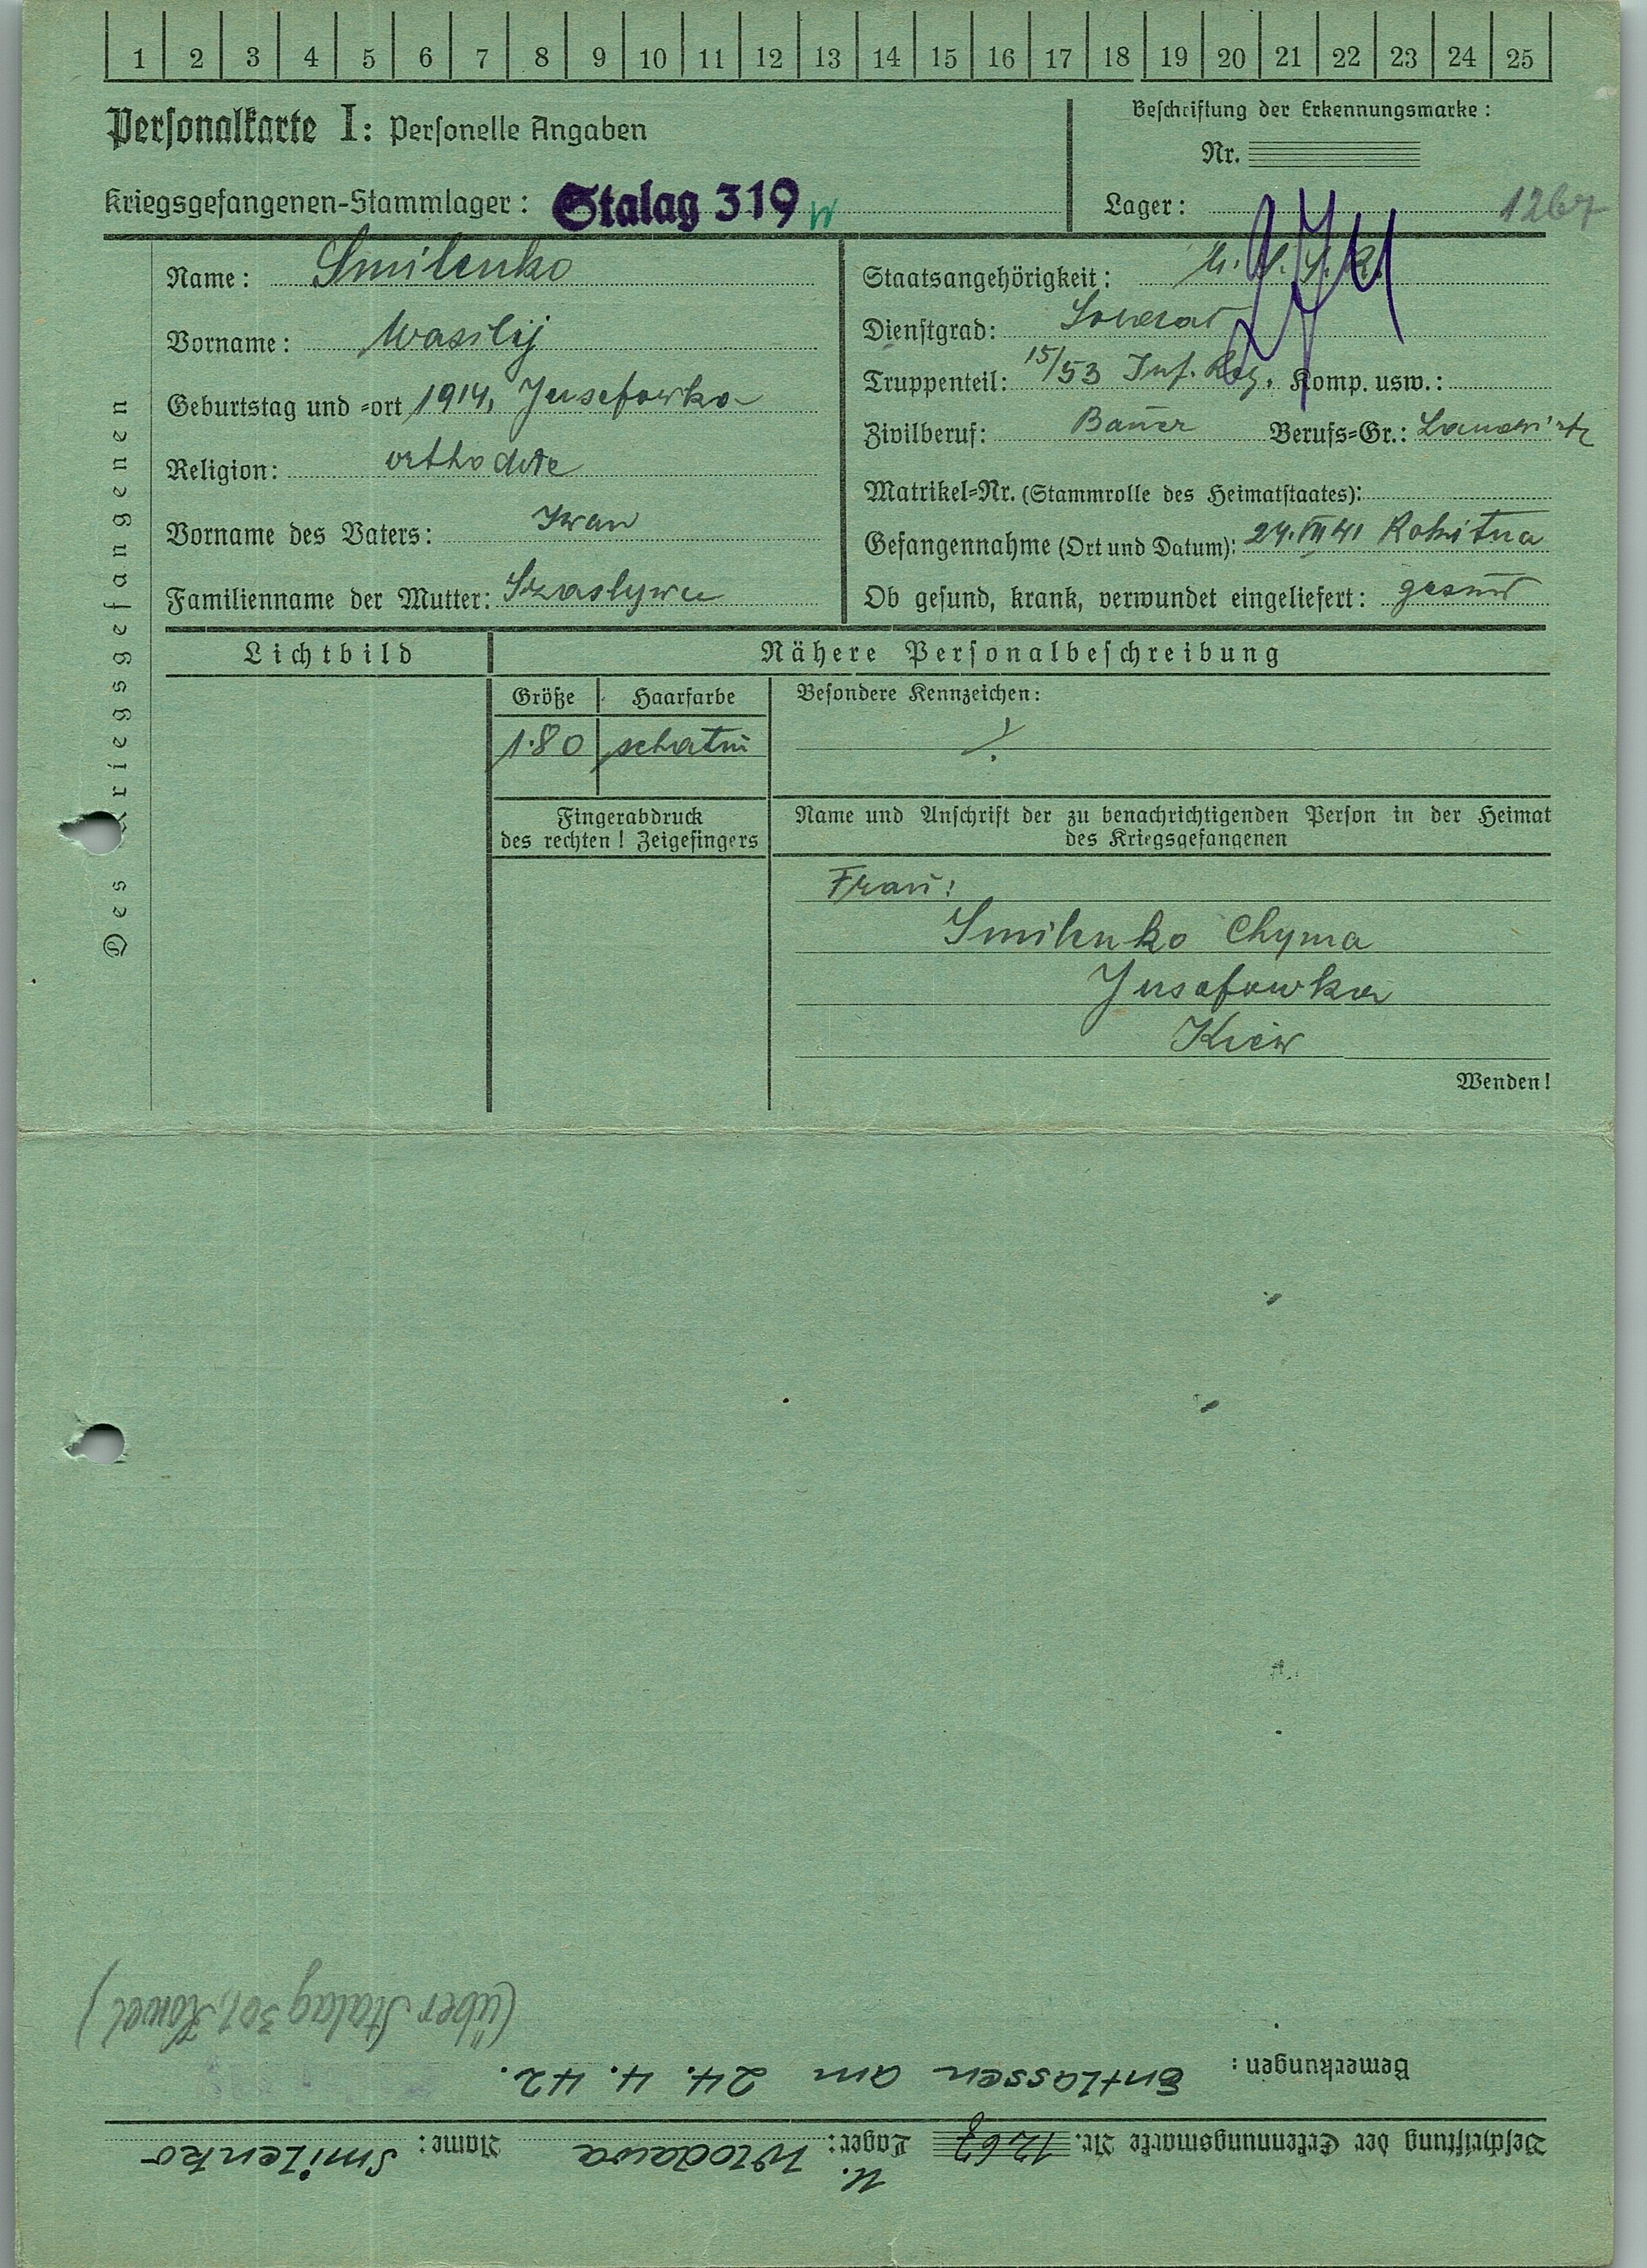 1 2 3 4 5 6 7 8 9 10 11 12 13 14 15 16 17 18 19 20 21 22 23 24 25
Personalkarte I: Personelle Angaben
Kriegsgefangenen-Stammlager: Stalag 319 W
Beschriftung der Erkennungsmarke:
Nr.
Lager: 1267
Des Kriegsgefangenen
Name: Smilenko
Vorname: Wasilij
Geburtstag und =ort 1914, Jusefowka
Religion: orthodoxe
Vorname des Vaters: Iwan
Familienname der Mutter:
Staatsangehörigkeit: U.S.S.R.
Dienstgrad: Soldat
Truppenteil: 15/53 Inf. Reg. Komp. usw.:
Zivilberuf: Bauer Berufs=Gr.: Landwirt
Matrikel=Nr. (Stammrolle des Heimatstaates):
Gefangennahme (Ort und Datum): 24.VII 41 Rokitna
Ob gesund, krank, verwundet eingeliefert: gesund
Lichtbild
Nähere Personalbeschreibung
Größe Haarfarbe
1.80 schatin
Besondere Kennzeichen:
Fingerabdruck
des rechten ! Zeigefingers
Name und Anschrift der zu benachrichtigenden Person in der Heimat
des Kriegsgefangenen
Frau:
Smilenko Chyma
Jusefowka
Kiew
Wenden!
Beschriftung der Erkennungsmarke Nr. 1267 Lager: Wlodawa Name: Smilenko
Bemerkungen: Entlassen am 24. 4. 42.
(über Stalag 301, Kowel)